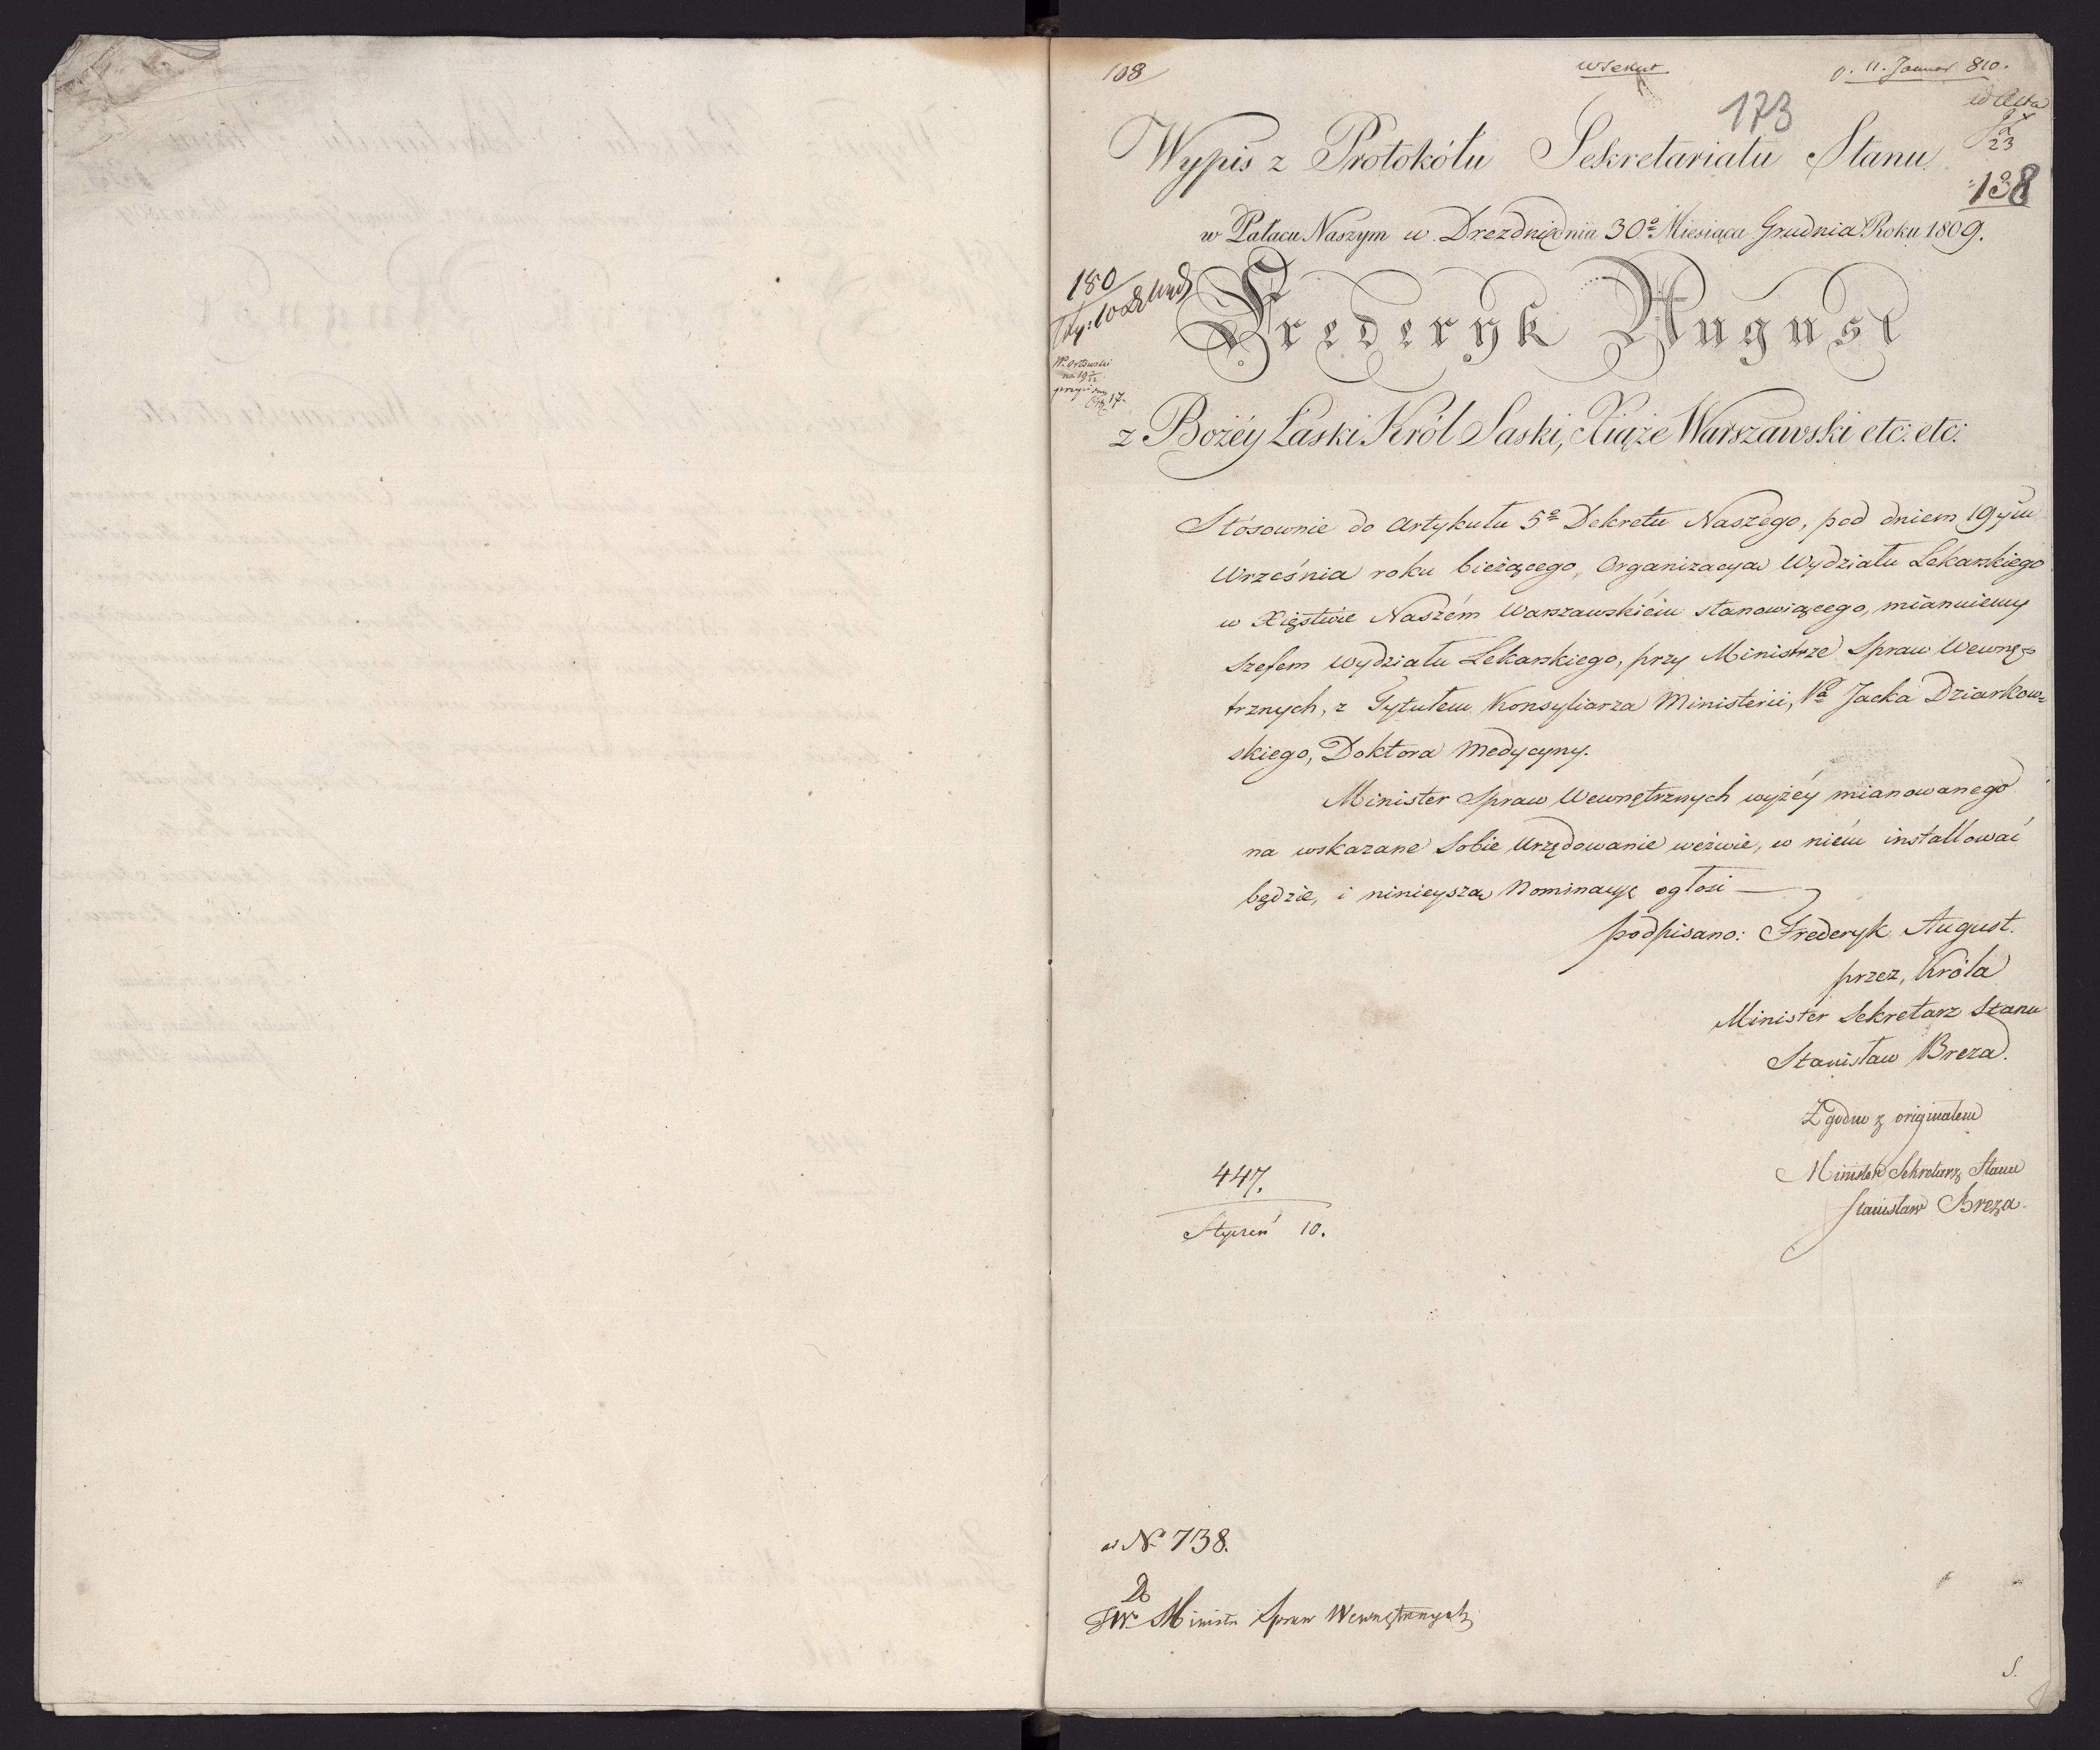 108
p. 11. Januar 810.
ad Acta
23
173
138
Wypis z Protokółu Sekretariatu Stanu
w Pałacu Naszym w Dreźdnie dnia 30º Miesiąca Grudnia Roku 1809.
180
Frederyk August
z Bożéy Łaski Król Saski, Xiąże Warszawski etc: etc:
Stósownie do Artykułu 5º Dekretu Naszego, pod dniem 19ym
Września roku bieżącego, Organizacyą Wydziału Lekarskiego
w Xięstwie Naszém Warszawskiém stanowiącego, mianuiemy
Szefem Wydziału Lekarskiego, przy Ministrze Spraw Wewnę=
trznych, z Tytułem Konsyliarza Ministerii, Pª Jacka Dziarkow=
skiego, Doktora Medycyny.
Minister Spraw Wewnętrznych wyżéy mianowanego
na wskazane Sobie Urzędowanie wezwie, w niém installować
będzie, i ninieyszą Nominacyę ogłosi —
podpisano: Frederyk August.
przez, Króla
Minister Sekretarz Stanu
Stanisław Breza.
Zgodno z originałem
Minister Sekretarz Stanu
Stanisław Breza.
447.
Styczeń 10.
ad Nº 738.
Do
JW Ministra Spraw Wewnętrznych
S.